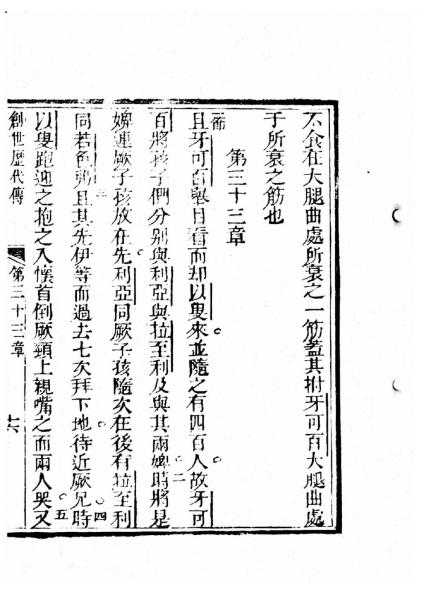 不食在大腿曲處所衰之一筋蓋其拊牙可百大腿曲處
于所衰之筋也
第三十三章
一節
且牙可百舉目看而却以叟來並隨之有四百人故牙可
二
百將孩子們分别與利亞與拉至利及與其兩婢時將是
三
婢連厥子孩放在先利亞同厥子孩隨次在後有拉至利
同若色弗且其先伊等而過去七次拜下地待近厥兄時
四
以叟跑迎之抱之入懷首倒厥頸上親嘴之而兩人哭又
五
創世歷代傳
第三十三章